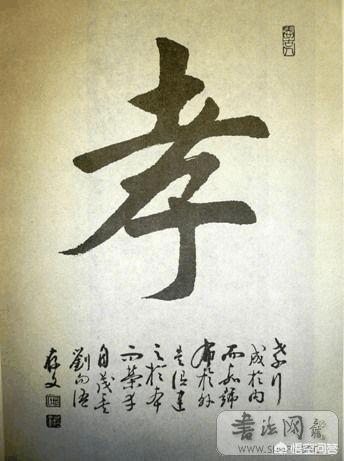 孝
孝行
成於内
而嘉號
布於外
是謂建
之於本
而榮華
自茂矣
劉向語
書法网
悟空问答